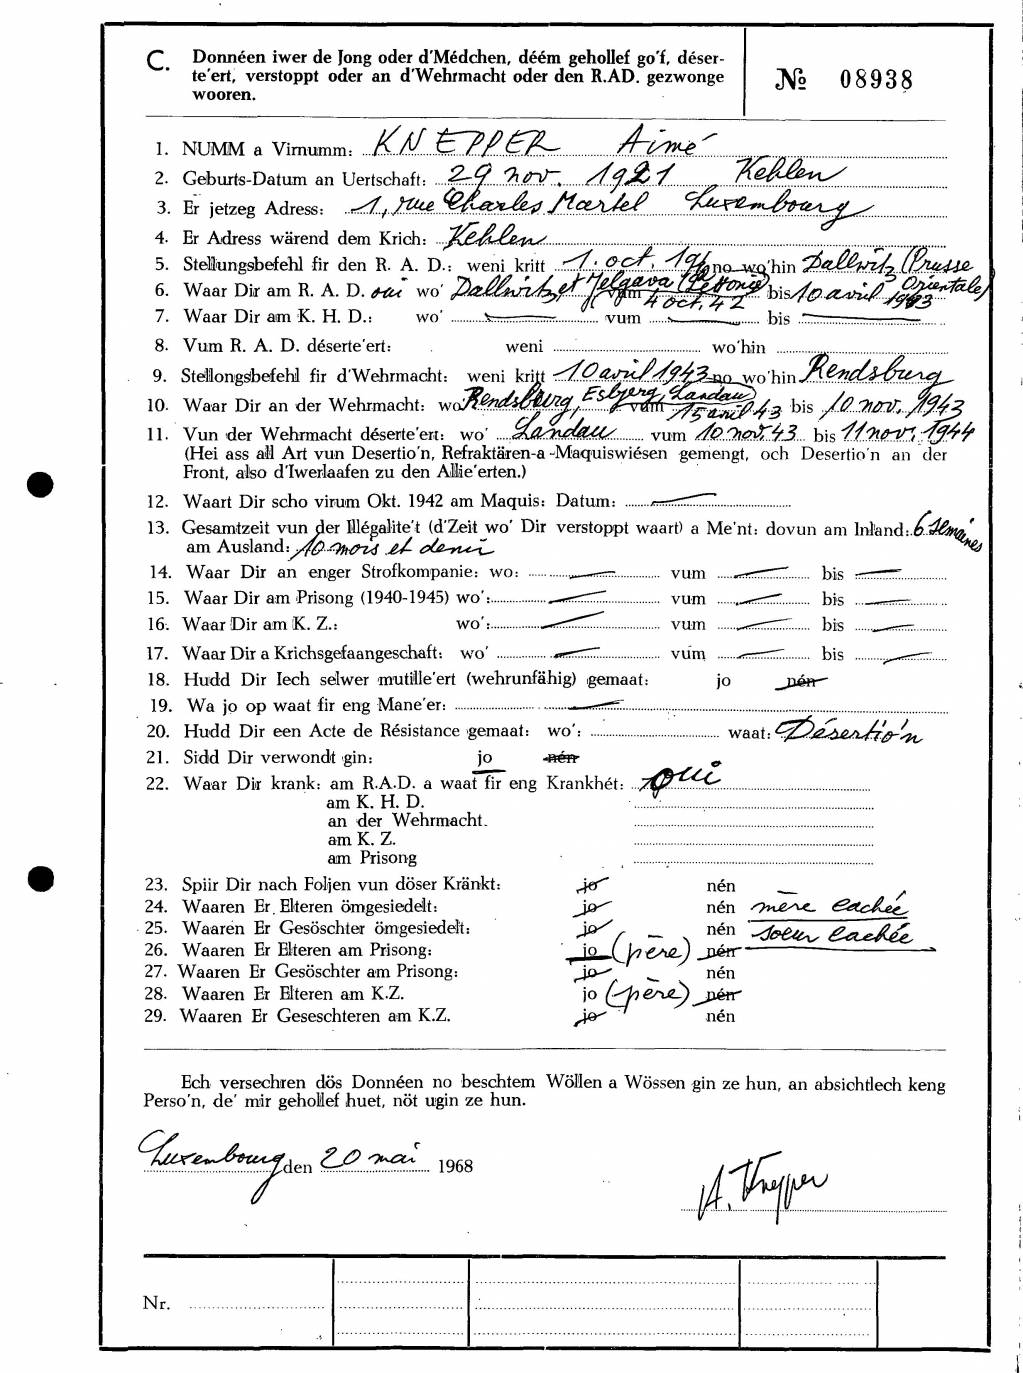 C. Donnéen iwer de Jong oder d'Médchen, déém gehollef go'f, déser-
te'ert, verstoppt oder an d'Wehrmacht oder den R.AD. gezwonge
wooren.
№ 08938
1. NUMM a Virnumm: KNEPPER Aimé
2. Geburts-Datum an Uertschaft: 29 nov. 1921 Kehlen
3. Er jetzeg Adress: 1, rue Charles Martel Luxembourg
4. Er Adress wärend dem Krich: Kehlen
5. Stellungsbefehl fir den R. A. D.: weni kritt 1. oct. 19 no wo'hin Dallwitz (Prusse
Orientale)
6. Waar Dir am R. A. D. oui wo' Dallwitz et Jelgava (Lettonie) vum 4 oct. 42 bis 10 avril 1943
7. Waar Dir am K. H. D.: wo' vum bis
8. Vum R. A. D. déserte'ert: weni wo'hin
9. Stellongsbefehl fir d'Wehrmacht: weni kritt 10 avril 1943 no wo'hin Rendsburg
10. Waar Dir an der Wehrmacht: wo Rendsburg, Esbjerg, Landau vum 15 avril 43 bis 10 nov. 1943
11. Vun der Wehrmacht déserte'ert: wo' Landau vum 10 nov. 43 bis 11 nov. 1944
(Hei ass all Art vun Desertio'n, Refraktären-a-Maquiswiésen gemengt, och Desertio'n an der
Front, also d'Iwerlaafen zu den Allie'erten.)
12. Waart Dir scho virum Okt. 1942 am Maquis: Datum:
13. Gesamtzeit vun der Illégalite't (d'Zeit wo' Dir verstoppt waart) a Me'nt: dovun am Inland: 6 semaines
am Ausland: 10 mois et demi
14. Waar Dir an enger Strofkompanie: wo: vum bis
15. Waar Dir am Prisong (1940-1945) wo': vum bis
16. Waar Dir am K. Z.: wo': vum bis
17. Waar Dir a Krichsgefaangeschaft: wo' vum bis
18. Hudd Dir Iech selwer mutille'ert (wehrunfähig) gemaat: jo nén
19. Wa jo op waat fir eng Mane'er:
20. Hudd Dir een Acte de Résistance gemaat: wo': waat: Désertio'n
21. Sidd Dir verwondt gin: jo nén
22. Waar Dir krank: am R.A.D. a waat fir eng Krankhét: oui
am K. H. D.
an der Wehrmacht.
am K. Z.
am Prisong
23. Spiir Dir nach Foljen vun döser Kränkt: jo nén
24. Waaren Er Elteren ömgesiedelt: jo nén mère cachée
25. Waaren Er Gesöschter ömgesiedelt: jo nén soeur cachée
26. Waaren Er Elteren am Prisong: jo (père) nén
27. Waaren Er Gesöschter am Prisong: jo nén
28. Waaren Er Elteren am K.Z. jo (père) nén
29. Waaren Er Geseschteren am K.Z. jo nén
Ech versechren dös Donnéen no beschtem Wöllen a Wössen gin ze hun, an absichtlech keng
Perso'n, de' mir gehollef huet, nöt ugin ze hun.
Luxembourg den 20 mai 1968
A. Knepper
Nr.